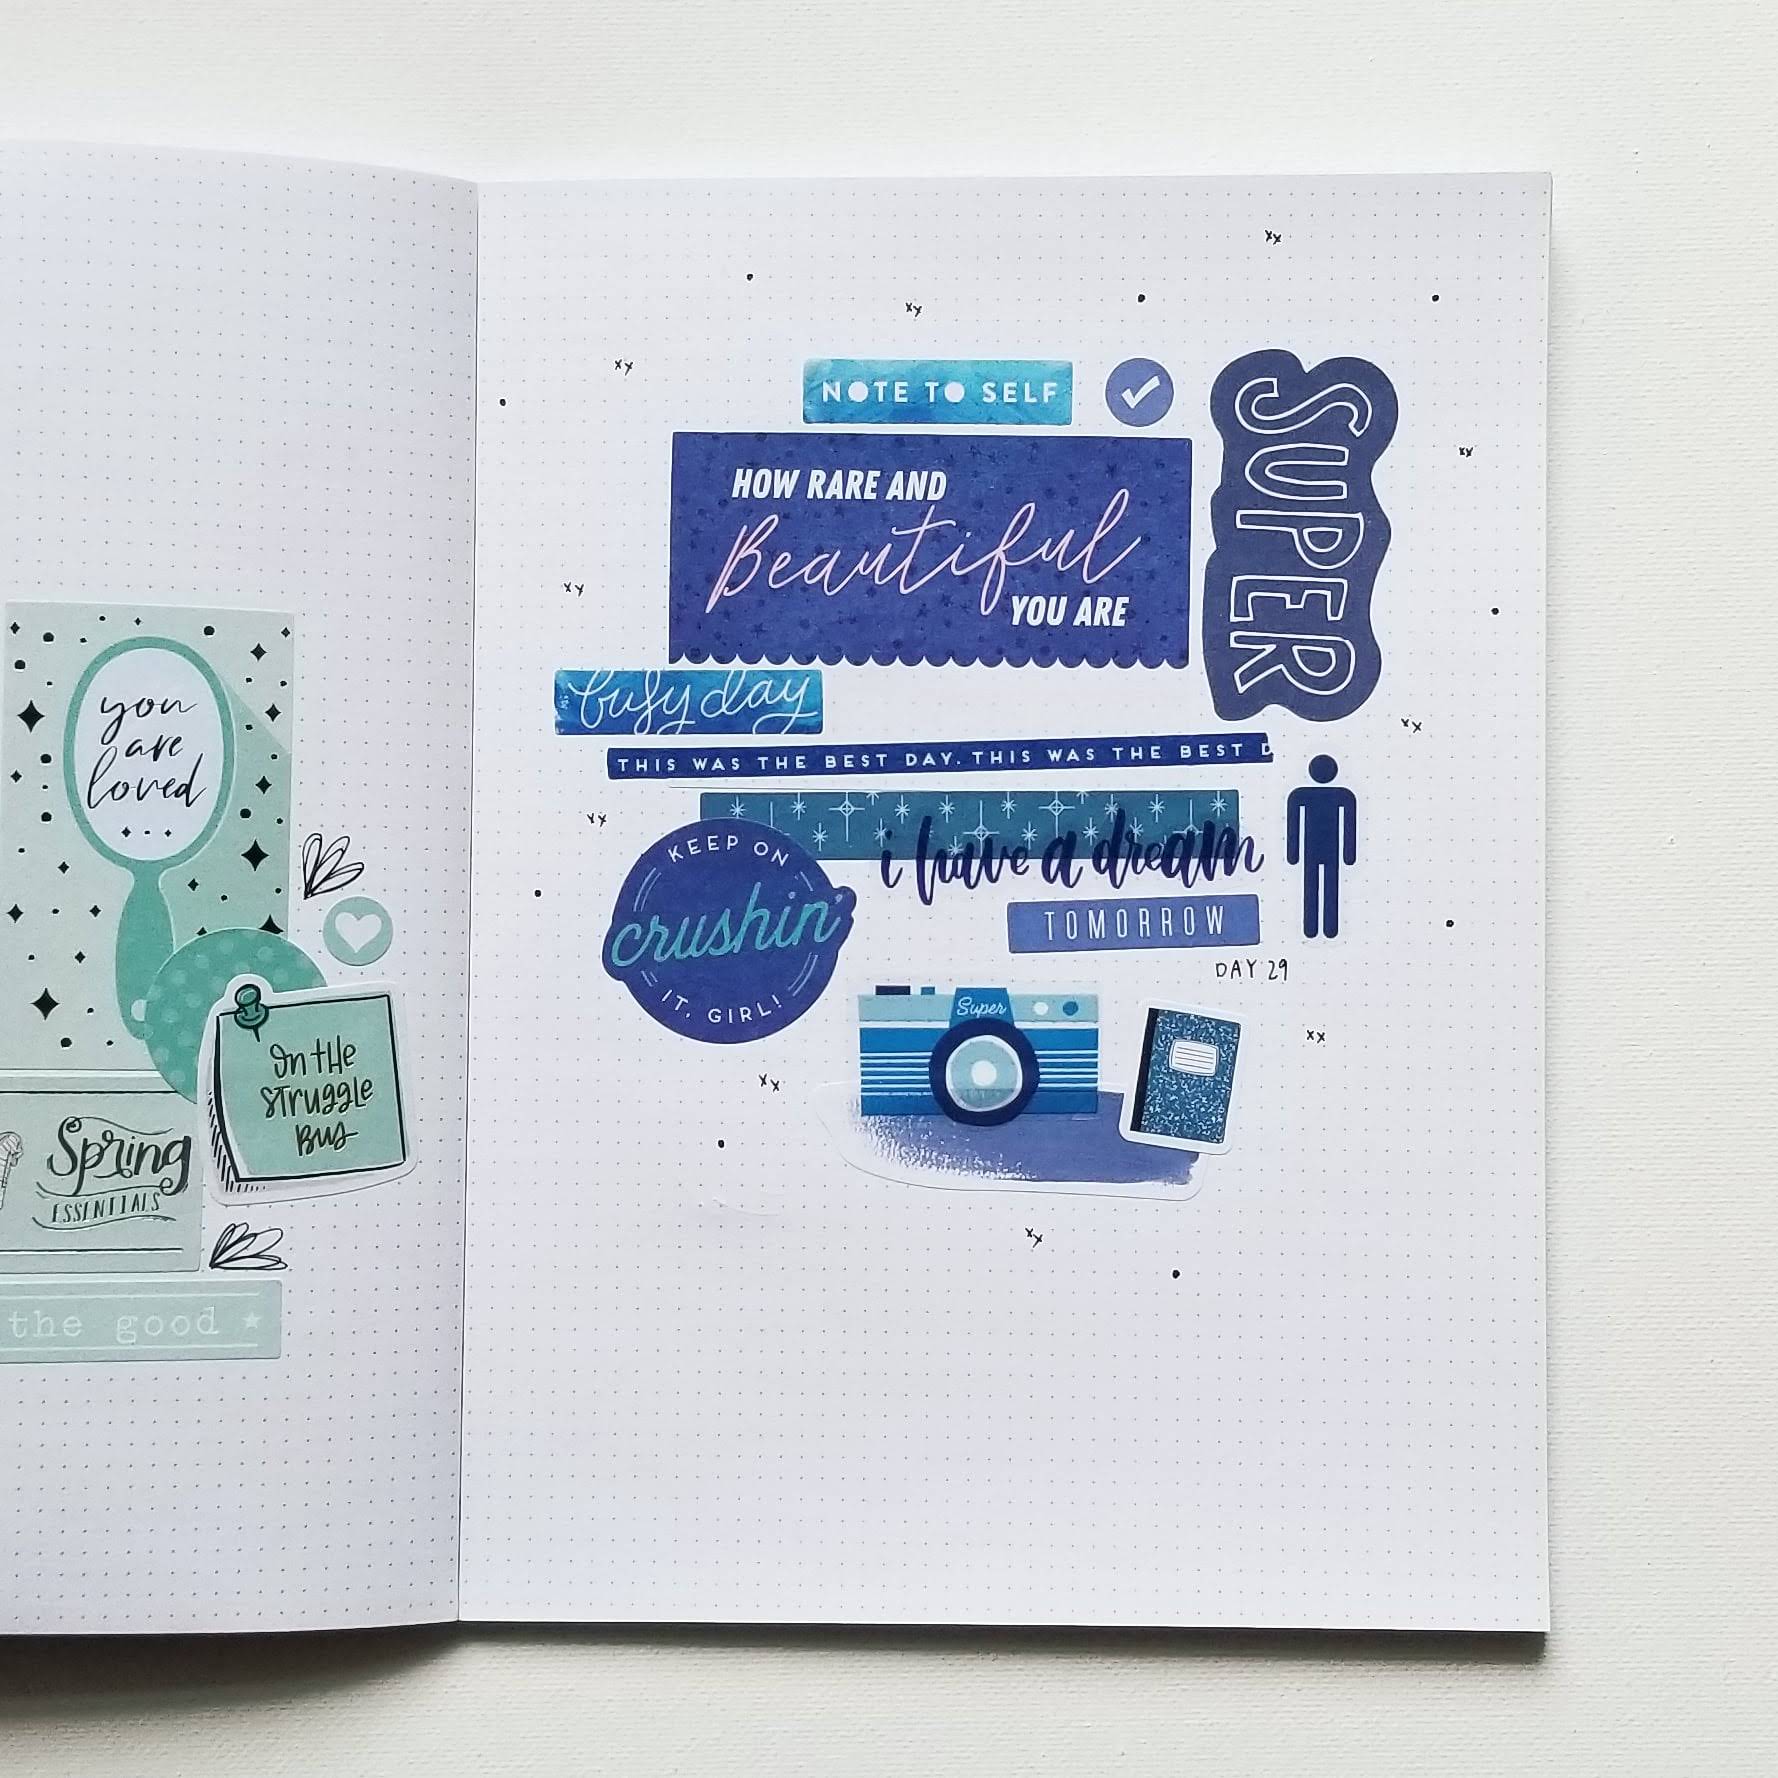 you
are
loved
On the
Struggle
Bus
Spring
ESSENTIALS
the good
NOTE TO SELF
SUPER
HOW RARE AND
Beautiful
YOU ARE
busy day
THIS WAS THE BEST DAY. THIS WAS THE BEST D
KEEP ON
crushin'
IT, GIRL!
i have a dream
TOMORROW
DAY 29
Super